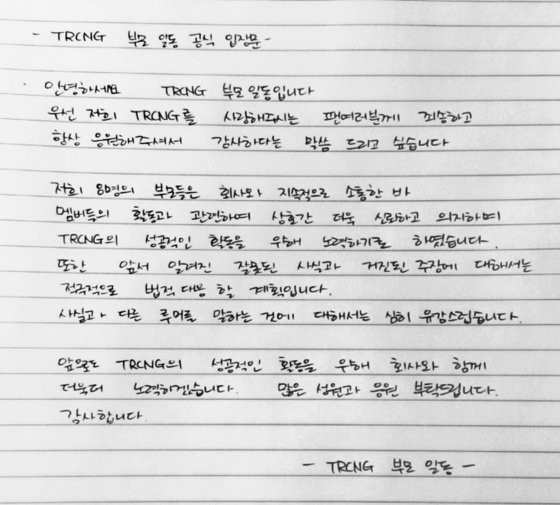 - TRCNG 부모 일동 공식 입장문 -
안녕하세요 TRCNG 부모 일동입니다
우선 저희 TRCNG를 사랑해주시는 팬여러분께 죄송하고
항상 응원해주셔서 감사하다는 말씀 드리고 싶습니다
저희 8명의 부모들은 회사와 지속적으로 소통한 바
멤버들의 활동과 관련하여 상호간 더욱 신뢰하고 의지하며
TRCNG의 성공적인 활동을 위해 노력하기로 하였습니다.
또한 앞서 알려진 잘못된 사실과 거짓된 주장에 대해서는
적극적으로 법적 대응 할 계획입니다.
사실과 다른 루머를 말하는 것에 대해서는 심히 유감스럽습니다.
앞으로도 TRCNG의 성공적인 활동을 위해 회사와 함께
더욱더 노력하겠습니다. 많은 성원과 응원 부탁드립니다.
감사합니다.
- TRCNG 부모 일동 -